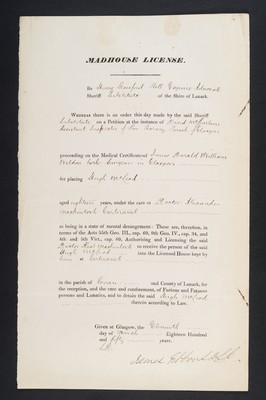 MADHOUSE LICENSE.
By Henry Glassford Bell Esquire Advocate
Sheriff Substitute of the Shire of Lanark.
WHEREAS there is on order this day made by the said Sheriff
Substitute on a Petition at the instance of
Assistant Inspector of the Barony Parish of Glasgow
proceeding on the Medical Certificate of James
Surgeon in Glasgow
for placing Hugh McLeod
aged eighteen years, under the care of Doctor Alexander
Mackintosh Gartnavel
as being in a state of mental derangement: These are, therefore, in
terms of the Acts 55th Geo. III., cap. 69, 9th Geo. IV., cap. 34, and
4th and 5th Vict., cap. 60, Authorising and Licensing the said
Doctor Alexr Mackintosh to receive the person of the said
Hugh McLeod into the Licensed House kept by
him at Gartnavel
in the parish of Govan and County of Lanark, for
the reception, and the care and confinement, of Furious and Fatuous
Persons and Lunatics, and to detain the said Hugh McLeod
therein according to Law.
Given at Glasgow, the Eleventh
day of March Eighteen Hundred
and fifty years.